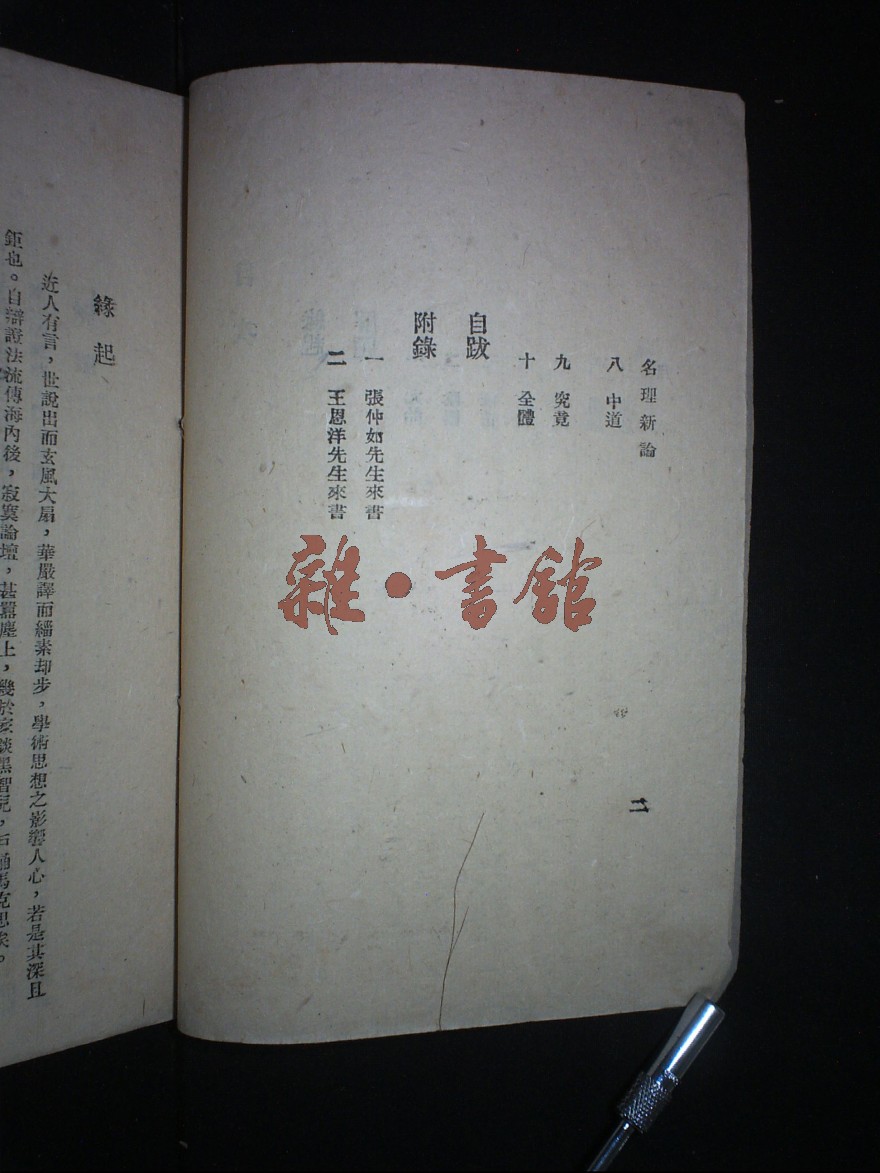 名理新論
八 中道
九 究竟
十 全體
自跋
附錄
一 張仲如先生來書
二 王恩洋先生來書
二
雜·書館
緣起
近人有言，世說出而玄風大扇，華嚴譯而緇素却步，學術思想之影響人心，若是其深且
鉅也。自辯證法流傳海內後，寂寞論壇，甚囂塵上，幾於玄談黑智兒，戶誦馬克思矣。